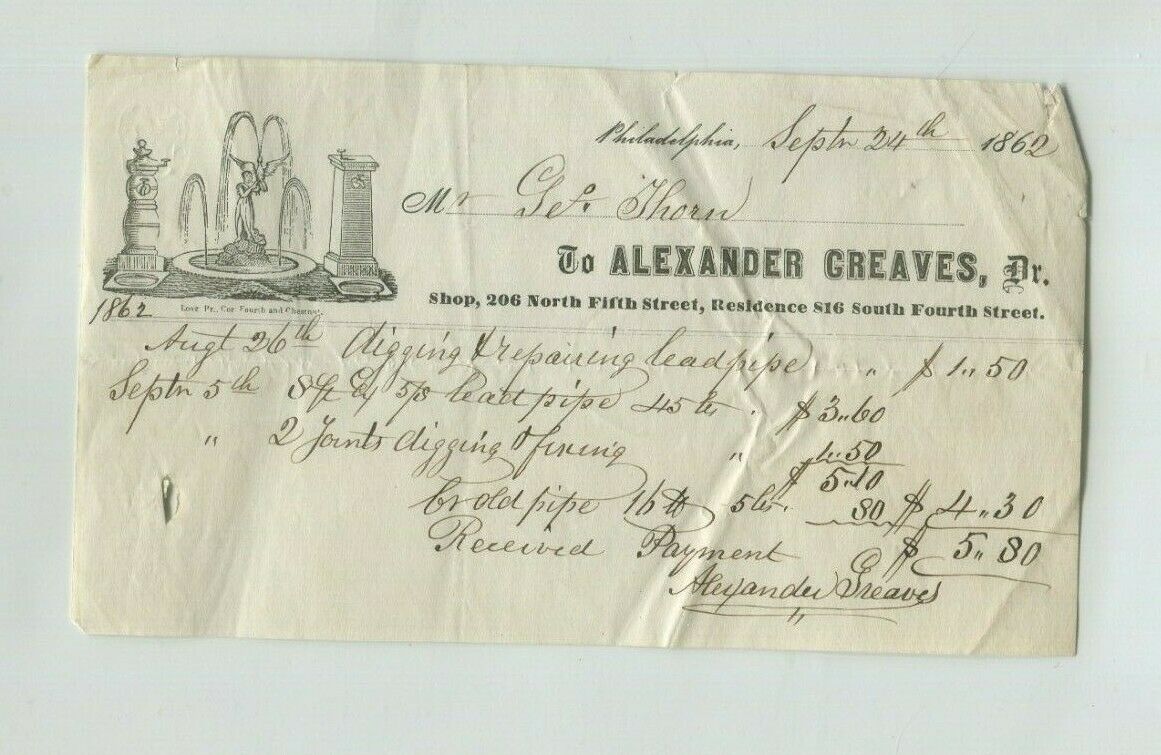 Philadelphia, Septr 24th 1862
Mr Geo. Thorn
To ALEXANDER GREAVES, Dr.
Shop, 206 North Fifth Street, Residence 816 South Fourth Street.
Love Pr., Cor Fourth and Chestnut.
1862
Augt 26th digging & repairing lead pipe " $ 1.. 50
Septr 5th 8 ft of 5/8 lead pipe 45 cts. $ 3.. 60
" 2 Joints digging & fixing " 1.. 50
$ 5.. 10
Cr old pipe 16 lb 5 cts. 80 $ 4.. 30
Received Payment $ 5.. 80
Alexander Greaves